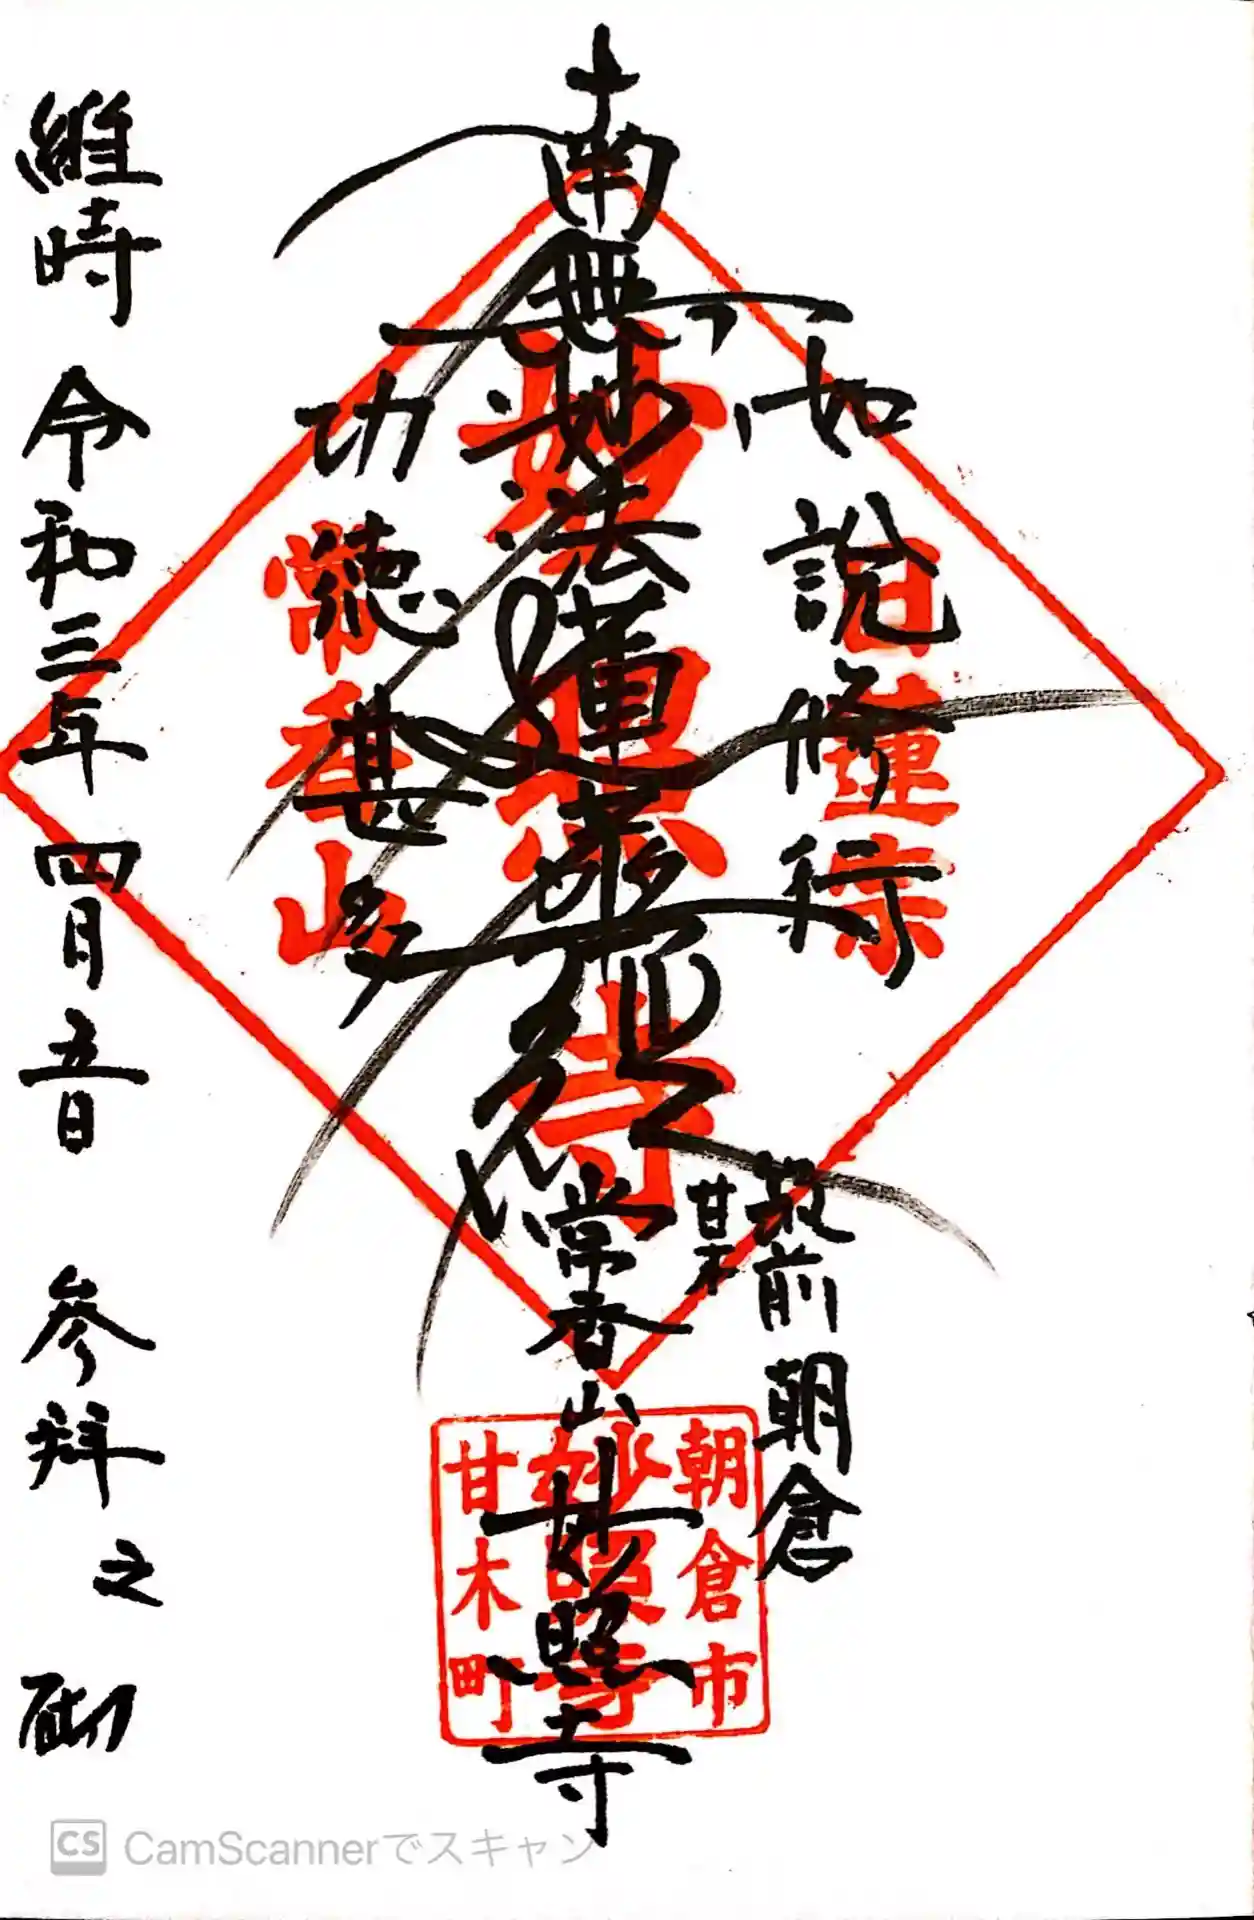 如説修行
筑前 朝倉
甘木
南無妙法蓮華経
常香山 妙照寺
功徳甚多
維時 令和三年 四月 五日 参拝之砌
日蓮宗
妙照寺
常香山
朝倉市
妙照寺
甘木町
CS CamScannerでスキャン